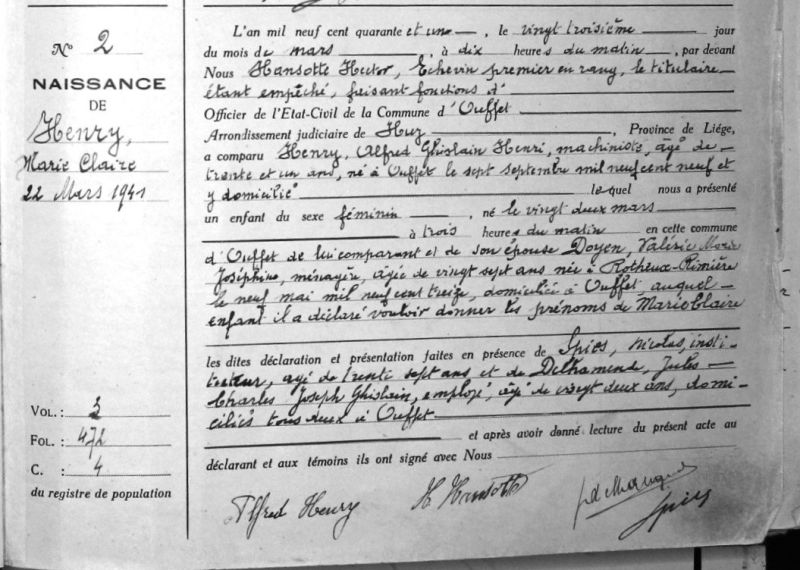 N° 2
NAISSANCE
DE
Henry,
Marie Claire
22 Mars 1941
VOL. : 3
FOL. : 472
C. : 4
du registre de population
L'an mil neuf cent quarante et un , le vingt troisième jour
du mois de mars , à dix heures du matin , par devant
Nous Hansotte Hector, Echevin premier en rang, le titulaire
étant empêché, faisant fonctions d'
Officier de l'Etat-Civil de la Commune d'Ouffet
Arrondissement judiciaire de Huy , Province de Liége,
a comparu Henry, Alfred Ghislain Henri, machiniste, âgé de
trente et un ans, né à Ouffet le sept septembre mil neuf cent neuf et
y domicilié lequel nous a présenté
un enfant du sexe féminin , né le vingt deux mars
à trois heures du matin en cette commune
d'Ouffet de lui comparant et de son épouse Doyen, Valérie Marie
Joséphine, ménagère, âgée de vingt sept ans née à Rotheux-Rimière
le neuf mai mil neuf cent treize, domiciliée à Ouffet auquel
enfant il a déclaré vouloir donner les prénoms de Marie Claire
les dites déclaration et présentation faites en présence de Spies, Nicolas, insti-
tuteur, âgé de trente sept ans et de Delhamende, Jules
Charles Joseph Ghislain, employé, âgé de vingt deux ans, domi-
ciliés tous deux à Ouffet
et après avoir donné lecture du présent acte au
déclarant et aux témoins ils ont signé avec Nous
Alfred Henry
H Hansotte
Spies